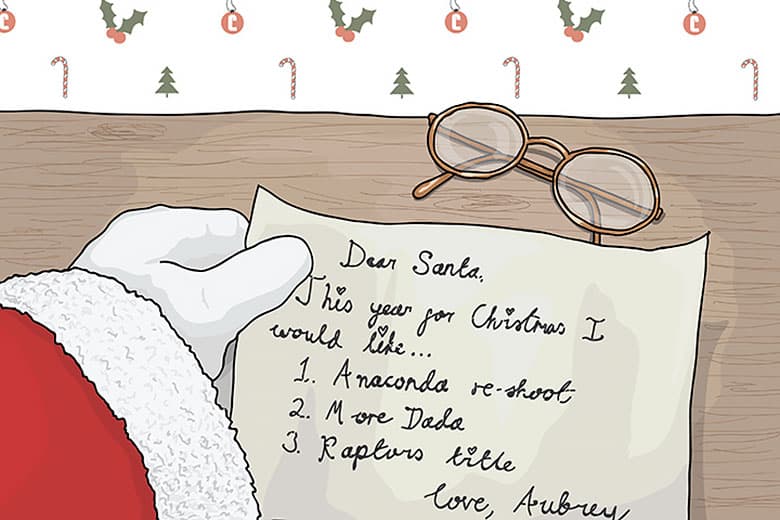 Dear Santa,
This year for Christmas I
would like...
1. Anaconda re-shoot
2. More Dada
3. Raptors title
love, Aubrey